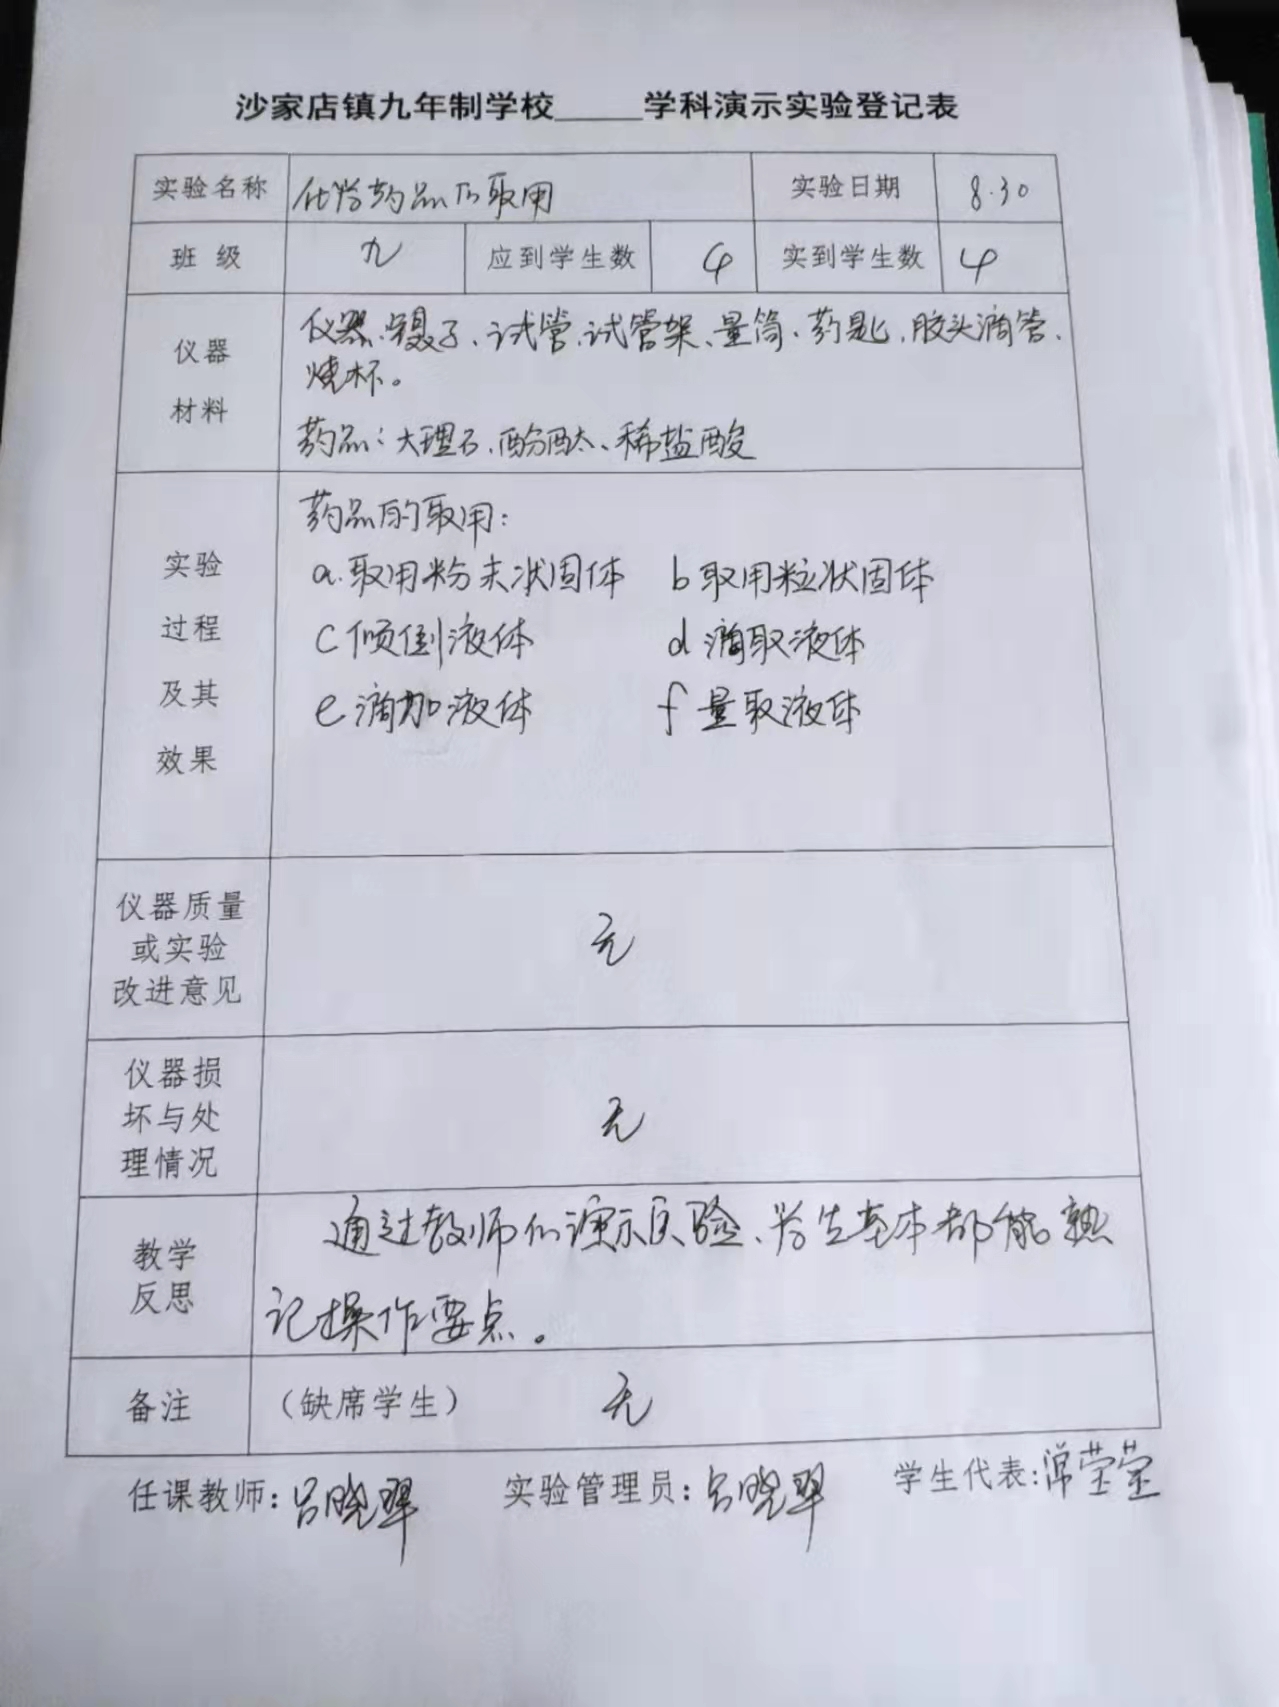 沙家店镇九年制学校_____学科演示实验登记表
实验名称 化学药品的取用 实验日期 8.30
班 级 九 应到学生数 4 实到学生数 4
仪器
材料
仪器:镊子、试管、试管架、量筒、药匙、胶头滴管、
烧杯。
药品:大理石、酚酞、稀盐酸
实验
过程
及其
效果
药品的取用:
a.取用粉末状固体 b取用粒状固体
c倾倒液体 d滴取液体
e滴加液体 f量取液体
仪器质量
或实验
改进意见
无
仪器损
坏与处
理情况
无
教学
反思
通过教师的演示实验、学生基本都能熟
记操作要点。
备注 (缺席学生) 无
任课教师:吕晓翠 实验管理员:吕晓翠 学生代表:莹莹